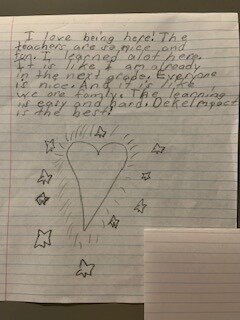 I love being here. The
teachers are so nice and
fun. I learned alot here.
It is like I am already
in the next grade. Everyone
is nice. And it is like
we are family. The learning
is easy and hard. DekeImpact
is the best.